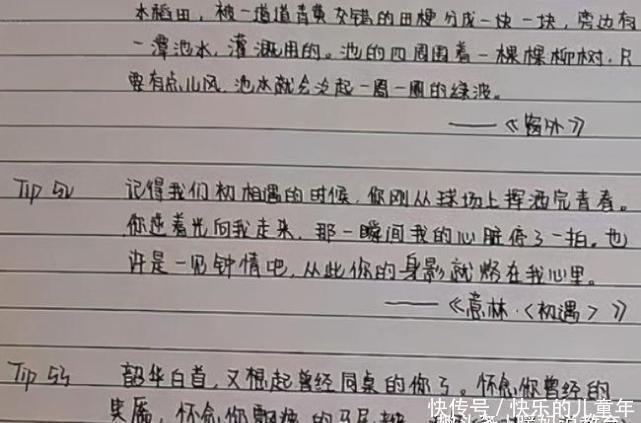 水稻田，被一道道青黄交错的田埂分成一块一块，旁边有
一潭池水，灌溉用的。池的四周围着一棵棵柳树，只
要有点儿风，池水就会泛起一圈一圈的绿波。
——《窗外》
Tip 52 记得我们初相遇的时候，你刚从球场上挥洒完青春。
你逆着光向我走来，那一瞬间我的心脏停了一拍。也
许是一见钟情吧，从此你的身影就烙在我心里。
——《意林·<初遇>》
Tip 53 韶华白首，又想起曾经同桌的你了。怀念你曾经的
笑靥，怀念你飘扬的马尾辫
快传号／快乐的儿童年